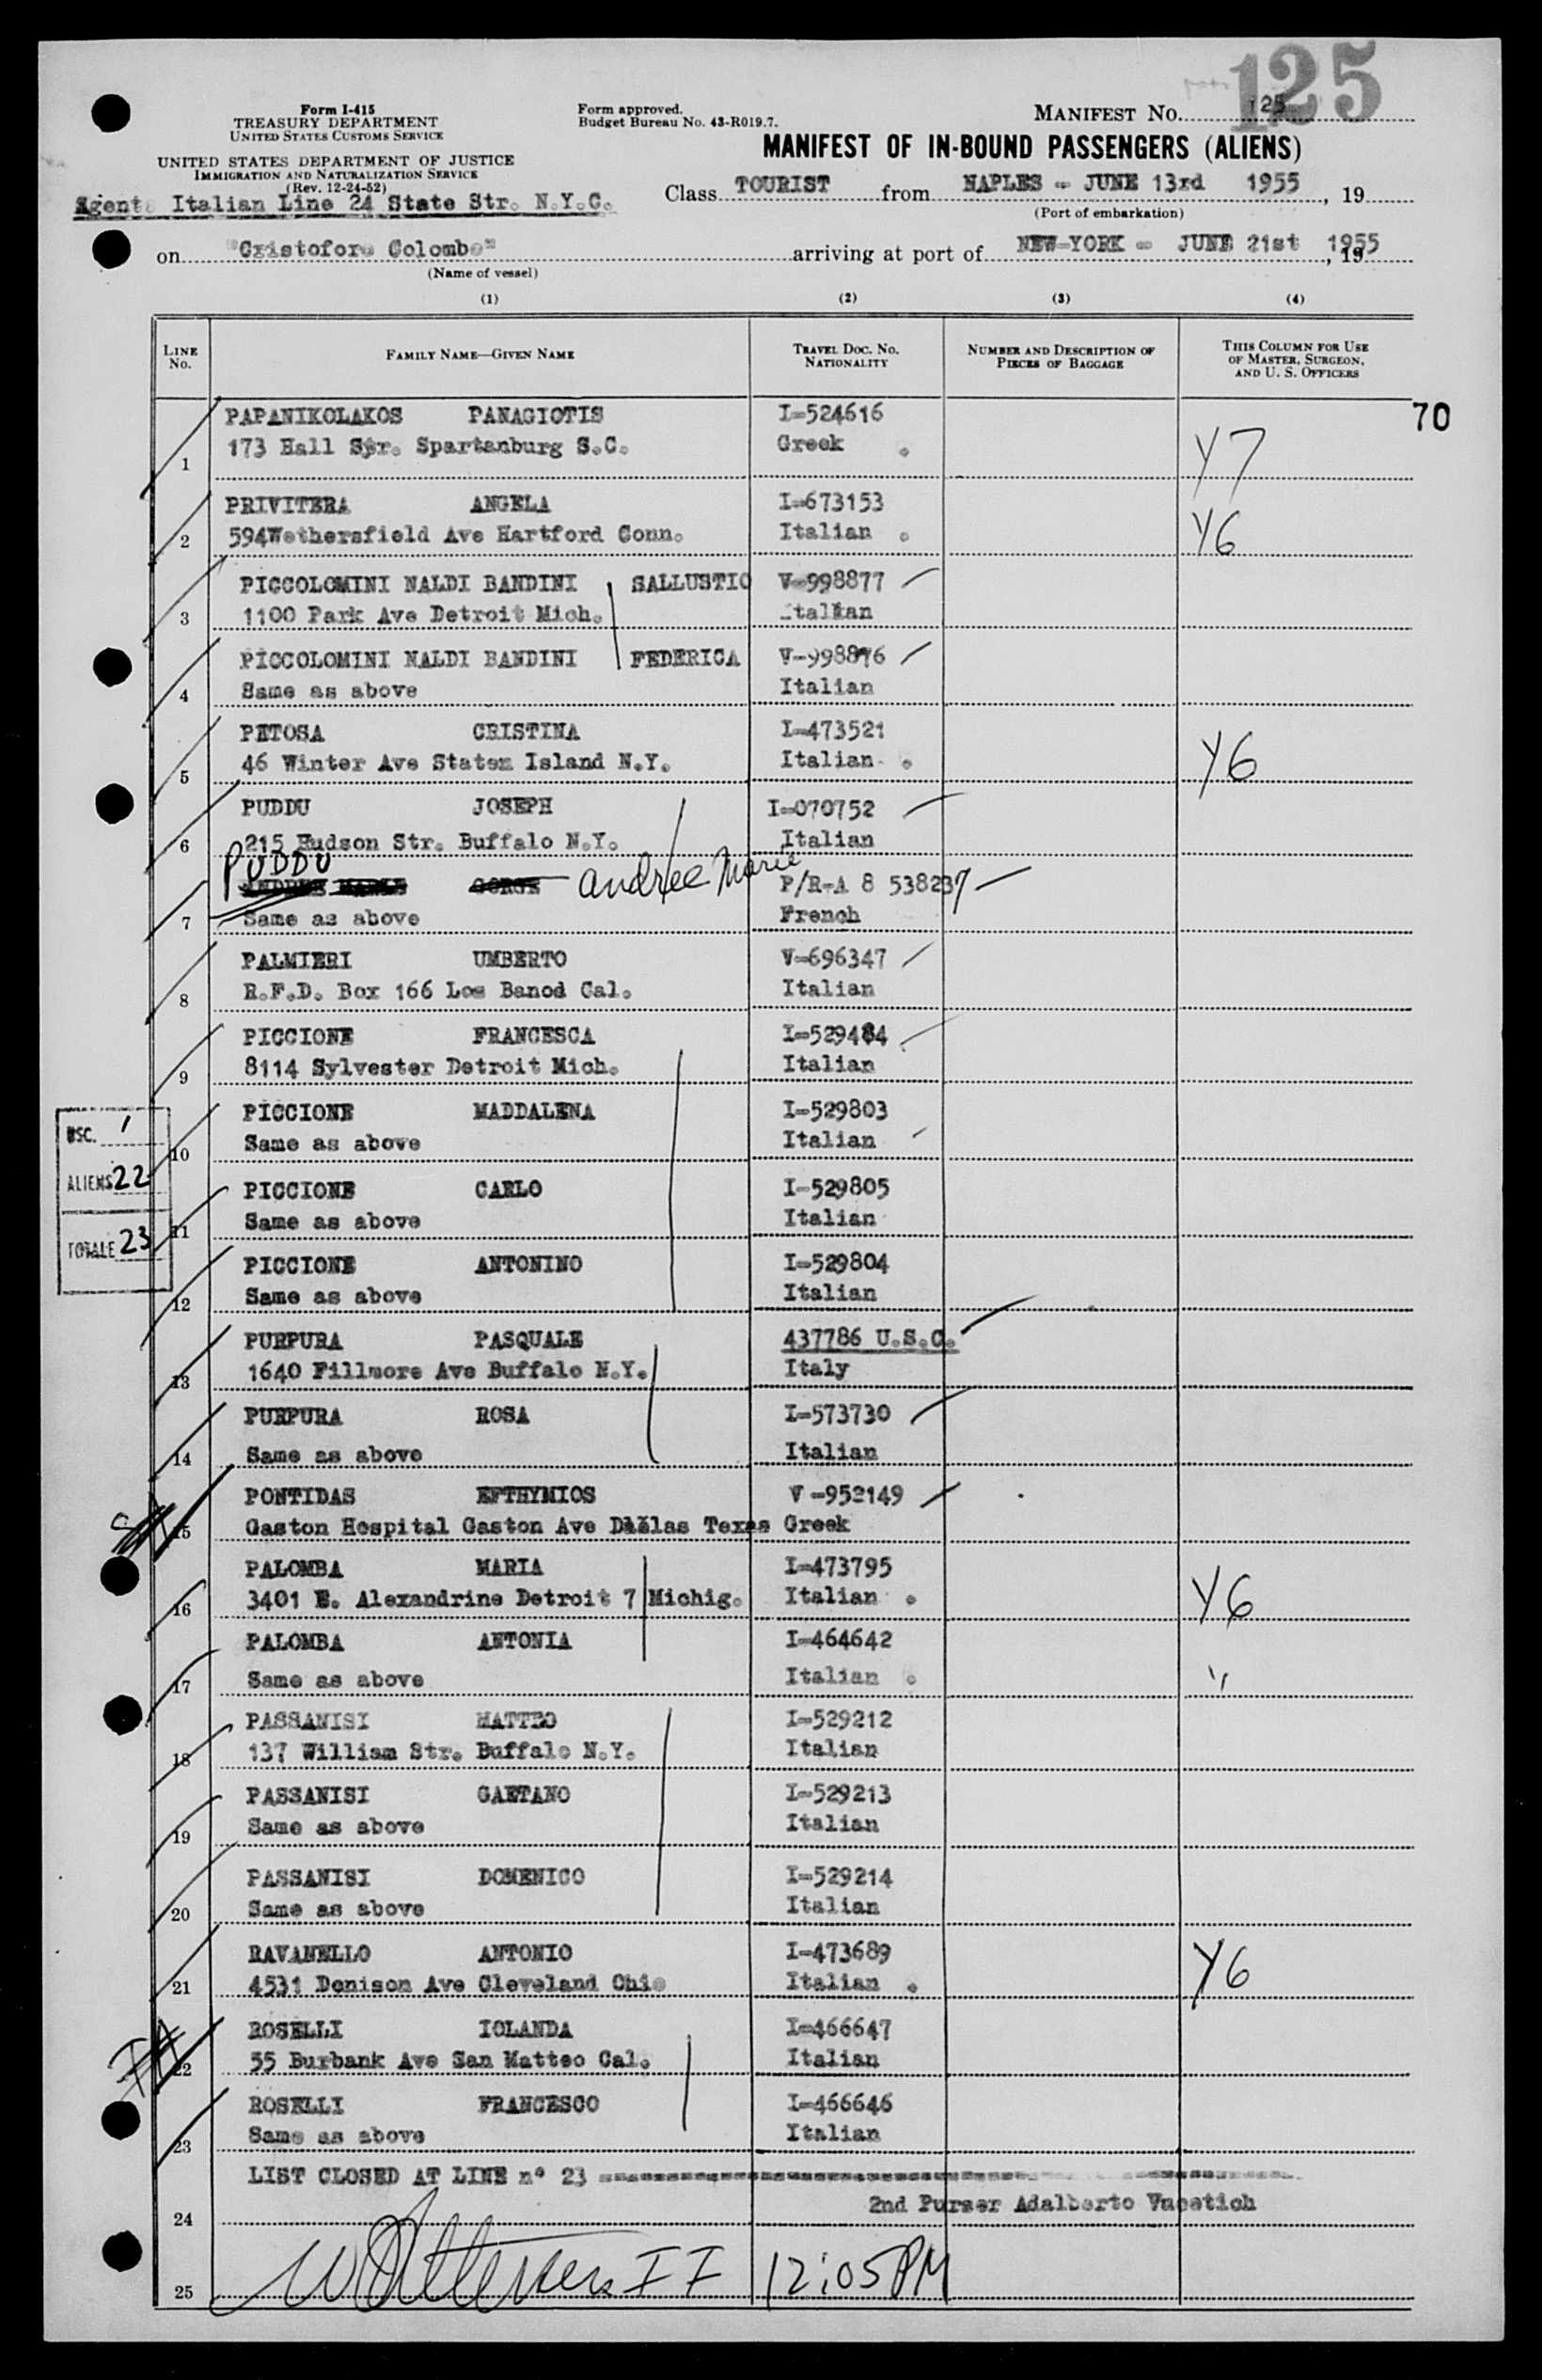 125
Form I-415
TREASURY DEPARTMENT
UNITED STATES CUSTOMS SERVICE
UNITED STATES DEPARTMENT OF JUSTICE
IMMIGRATION AND NATURALIZATION SERVICE
(Rev. 12-24-52)
Agent: Italian Line 24 State Str. N.Y.C.
Form approved.
Budget Bureau No. 43-R019.7.
MANIFEST NO. 125
MANIFEST OF IN-BOUND PASSENGERS (ALIENS)
Class TOURIST from NAPLES - JUNE 13rd 1955, 19
(Port of embarkation)
on "Cristoforo Colombo" arriving at port of NEW-YORK - JUNE 21st 1955, 19
(Name of vessel)
(1) (2) (3) (4)
LINE NO.
FAMILY NAME—GIVEN NAME
TRAVEL DOC. NO. NATIONALITY
NUMBER AND DESCRIPTION OF PIECES OF BAGGAGE
THIS COLUMN FOR USE OF MASTER, SURGEON, AND U. S. OFFICERS
70
PAPANIKOLAKOS PANAGIOTIS I-524616
1 173 Hall Str. Spartanburg S.C. Greek Y7
PRIVITERA ANGELA I-673153
2 594 Wethersfield Ave Hartford Conn. Italian Y6
PICCOLOMINI NALDI BANDINI SALLUSTIO V-998877
3 1100 Park Ave Detroit Mich. Italian
PICCOLOMINI NALDI BANDINI FEDERICA V-998876
4 Same as above Italian
PETOSA CRISTINA I-473521
5 46 Winter Ave Staten Island N.Y. Italian Y6
PUDDU JOSEPH I-070752
6 215 Hudson Str. Buffalo N.Y. Italian
PUDDU Andrée Marie
ANDREE MARIE GORGE P/R-A 8 538237
7 Same as above French
PALMIERI UMBERTO V-696347
8 R.F.D. Box 166 Los Banod Cal. Italian
PICCIONE FRANCESCA I-529484
9 8114 Sylvester Detroit Mich. Italian
PICCIONE MADDALENA I-529803
10 Same as above Italian
PICCIONE CARLO I-529805
11 Same as above Italian
PICCIONE ANTONINO I-529804
12 Same as above Italian
USC. 1
ALIENS 22
TOTALE 23
PURPURA PASQUALE 437786 U.S.C.
13 1640 Fillmore Ave Buffalo N.Y. Italy
PURPURA ROSA I-573730
14 Same as above Italian
PONTIDAS EFTHYMIOS V-952149
15 Gaston Hospital Gaston Ave Dallas Texas Greek
PALOMBA MARIA I-473795
16 3401 E. Alexandrine Detroit 7 Michig. Italian Y6
PALOMBA ANTONIA I-464642
17 Same as above Italian "
PASSANISI MATTEO I-529212
18 137 William Str. Buffalo N.Y. Italian
PASSANISI GAETANO I-529213
19 Same as above Italian
PASSANISI DOMENICO I-529214
20 Same as above Italian
RAVANELLO ANTONIO I-473689
21 4531 Denison Ave Cleveland Ohio Italian Y6
ROSELLI IOLANDA I-466647
22 55 Burbank Ave San Matteo Cal. Italian
ROSELLI FRANCESCO I-466646
23 Same as above Italian
LIST CLOSED AT LINE n° 23
2nd Purser Adalberto
24
25 II 12:05 PM